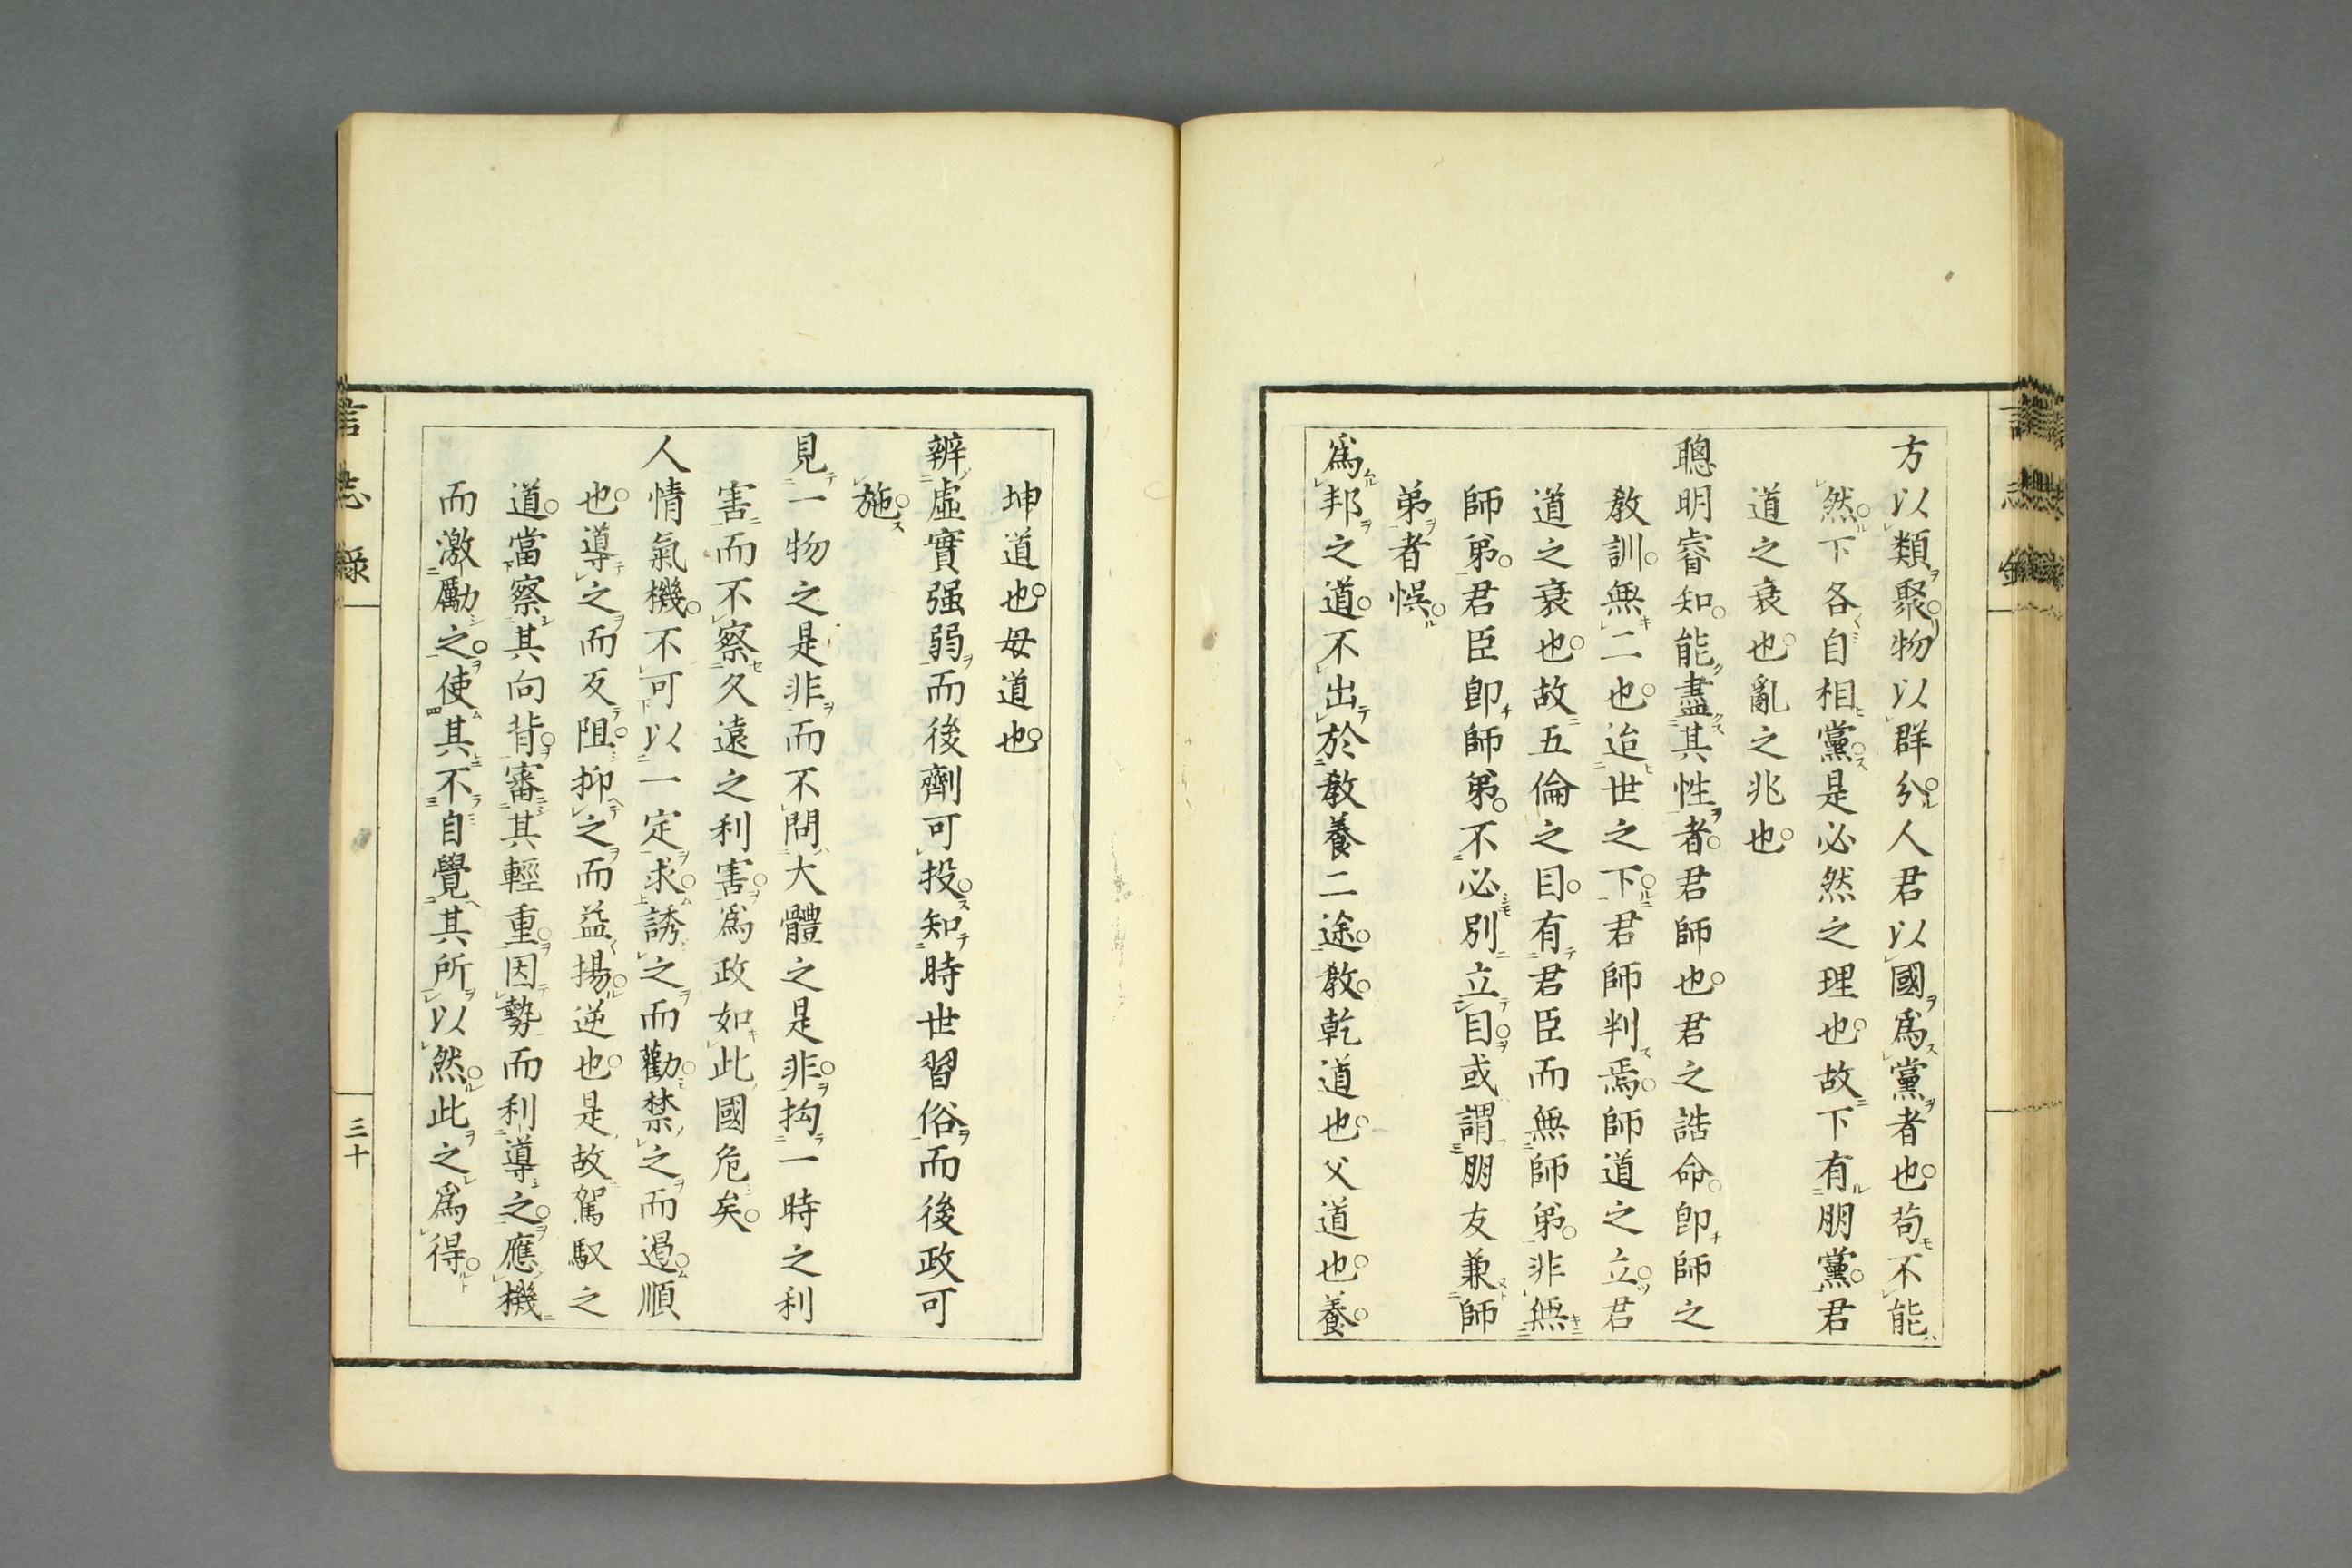 方以類聚物以群分人君以國爲黨者也苟不能
然下各自相黨是必然之理也故下有朋黨君
道之衰也亂之兆也
聰明睿知能盡其性者君師也君之誥命卽師之
敎訓無二也迨世之下君師判焉師道之立君
道之衰也故五倫之目有君臣而無師弟非無
師弟君臣卽師弟不必別立目或謂朋友兼師
弟者悞
爲邦之道不出於敎養二途敎乾道也父道也養
坤道也母道也
辨虛實强弱而後劑可投知時世習俗而後政可
施
見一物之是非而不問大體之是非拘一時之利
害而不察久遠之利害爲政如此國危矣
人情氣機不可以一定求誘之而勸禁之而遏順
也導之而反阻抑之而益揚逆也是故駕馭之
道當察其向背審其輕重因勢而利導之應機
而激勵之使其不自覺其所以然此之爲得
言志錄
三十